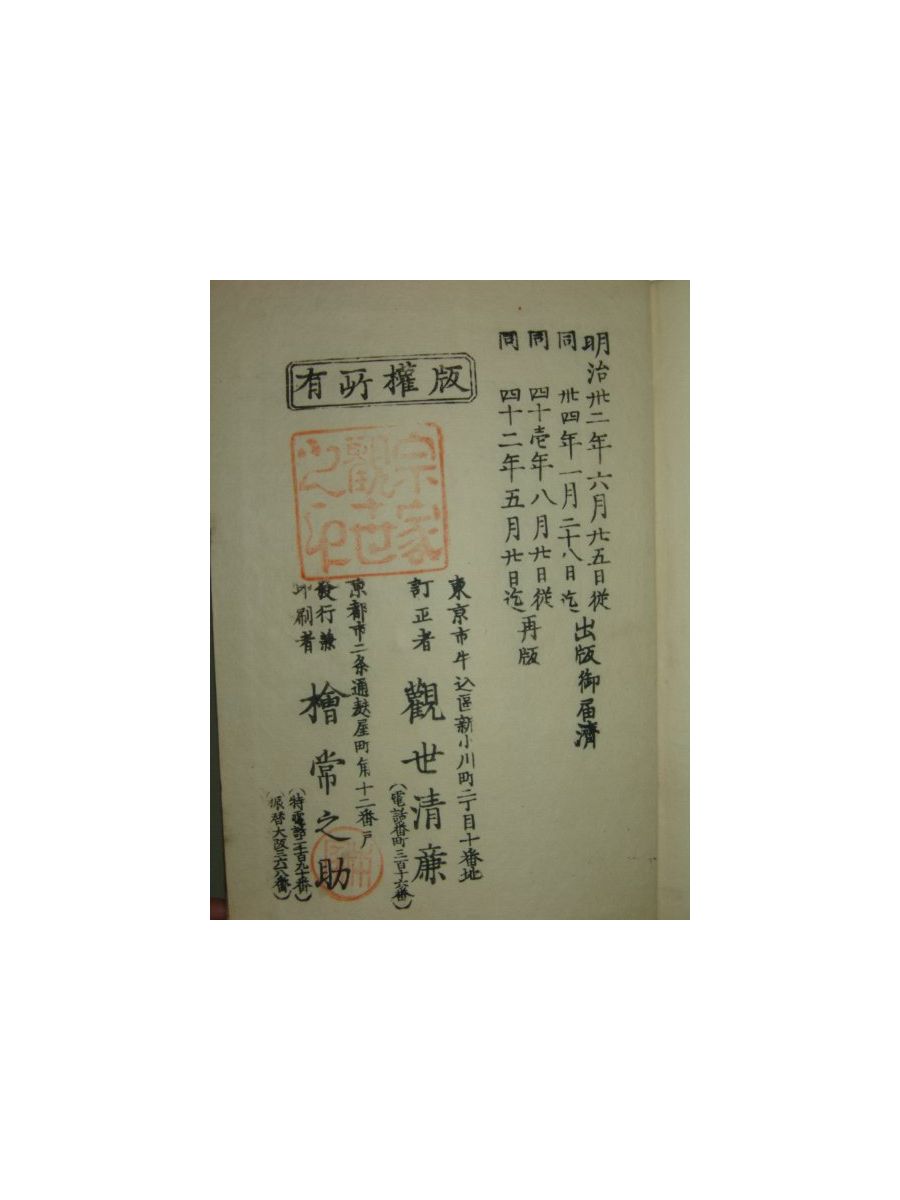 明治卅二年六月廿五日從
同 卅四年一月二十八日迄
出版御届濟
同 四十壱年八月廿日從
同 四十二年五月廿日迄
再版
版權所有
宗家
觀世
之印
東京市牛込區新小川町二丁目十番地
訂正者 觀世清廉
(電話番町三百十六番)
京都市二条通麸屋町角十二番戸
發行兼
印刷者
檜常之助
(特電話二千百九十番)
(振替大阪三六八番)